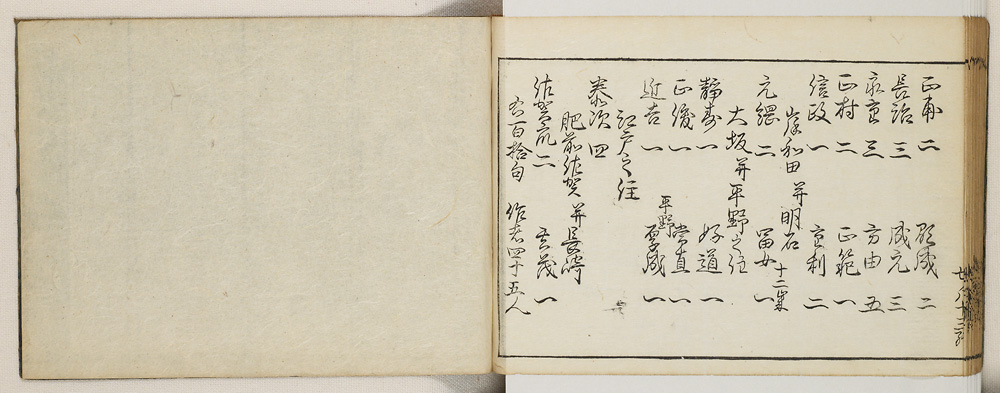 正甫 二 顕成 二
長治 三 成元 三
永重 三 方由 五
正村 二 正範 一
信政 一 重利 二
岸和田 并明石
元綱 二 留女 十二歳 一
大坂 并平野之住
静寿 一 好道 一
正後 一 常直 一
近吉 一 平野 成 一
江戸之住
泰次 四
肥前佐賀 并長崎
佐賀 二 茂 一
右百拾句 作者四十五人